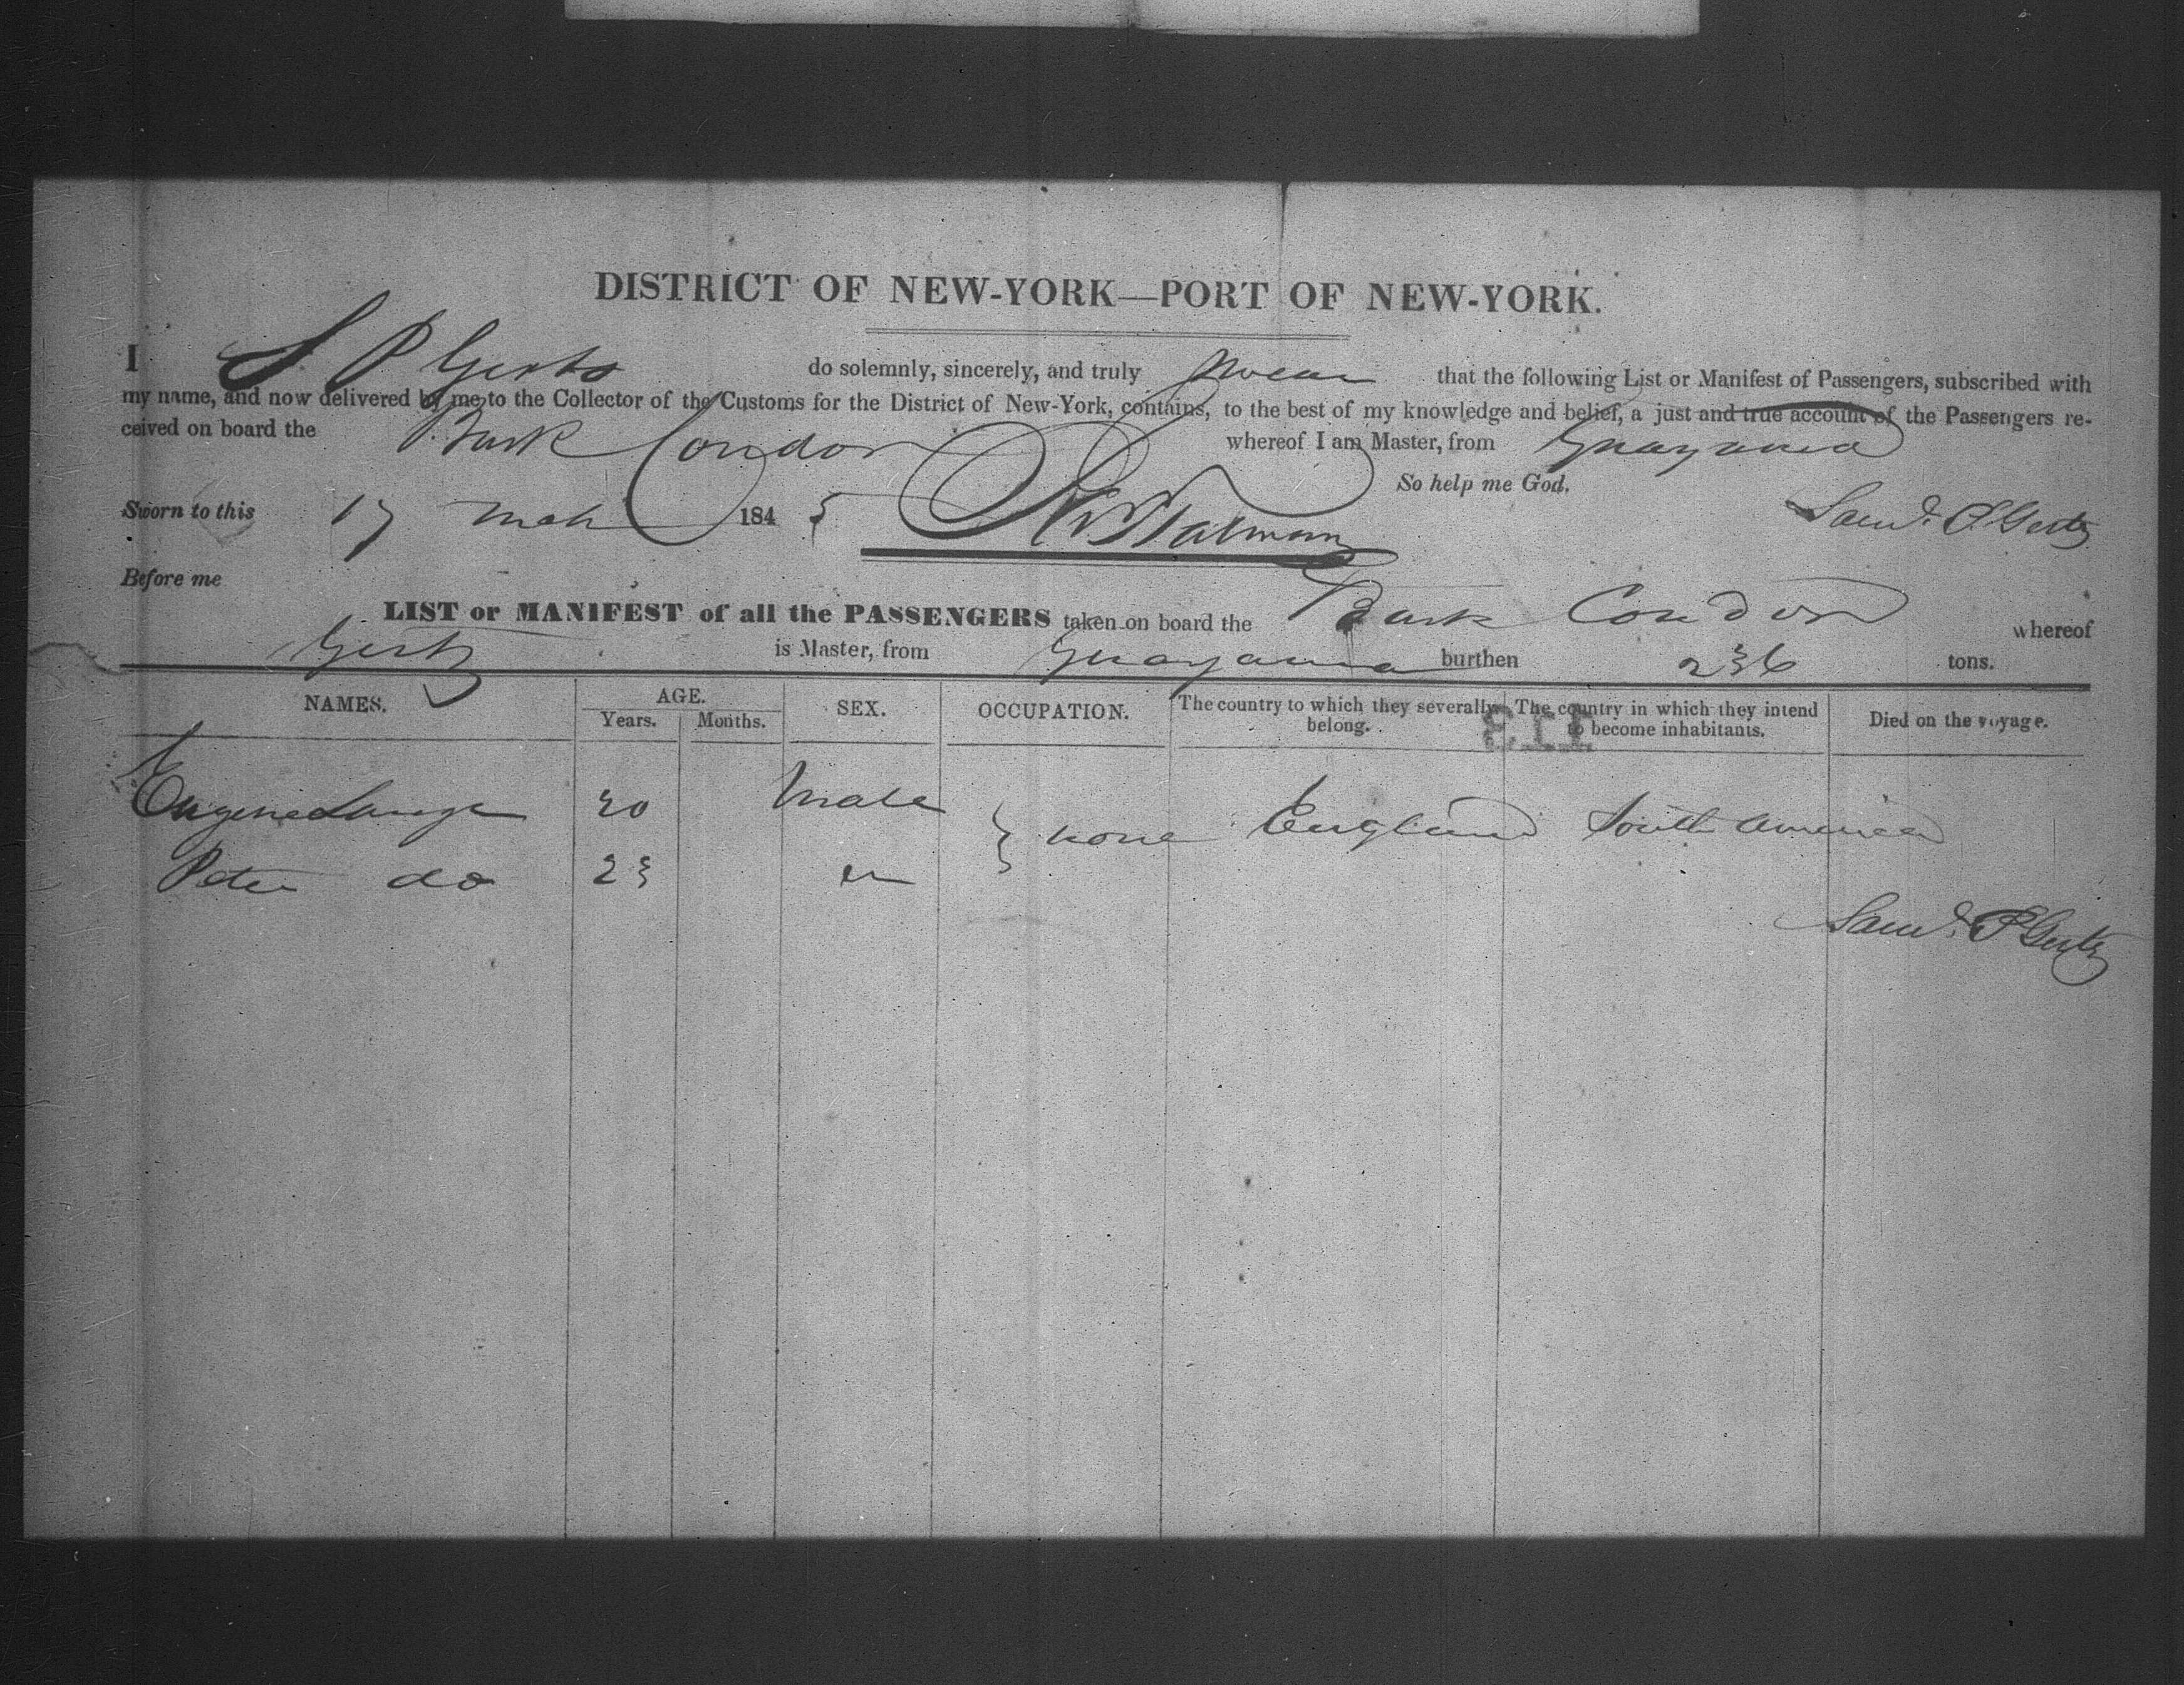 DISTRICT OF NEW-YORK—PORT OF NEW-YORK.
I S P Gerts do solemnly, sincerely, and truly swear that the following List or Manifest of Passengers, subscribed with
my name, and now delivered by me to the Collector of the Customs for the District of New-York, contains, to the best of my knowledge and belief, a just and true account of the Passengers re-
ceived on board the Bark Condor whereof I am Master, from Guayama
So help me God.
Sworn to this 17 Mch 1845 Saml. P Gerts
Before me
LIST or MANIFEST of all the PASSENGERS taken on board the Bark Condor whereof
Gerts is Master, from Guayama burthen 236 tons.
NAMES. AGE. Years. Months. SEX. OCCUPATION. The country to which they severally belong. The country in which they intend to become inhabitants. Died on the voyage.
113
Eugene Lange 20 Male none England South America
Peter do 23
Saml. P Gerts